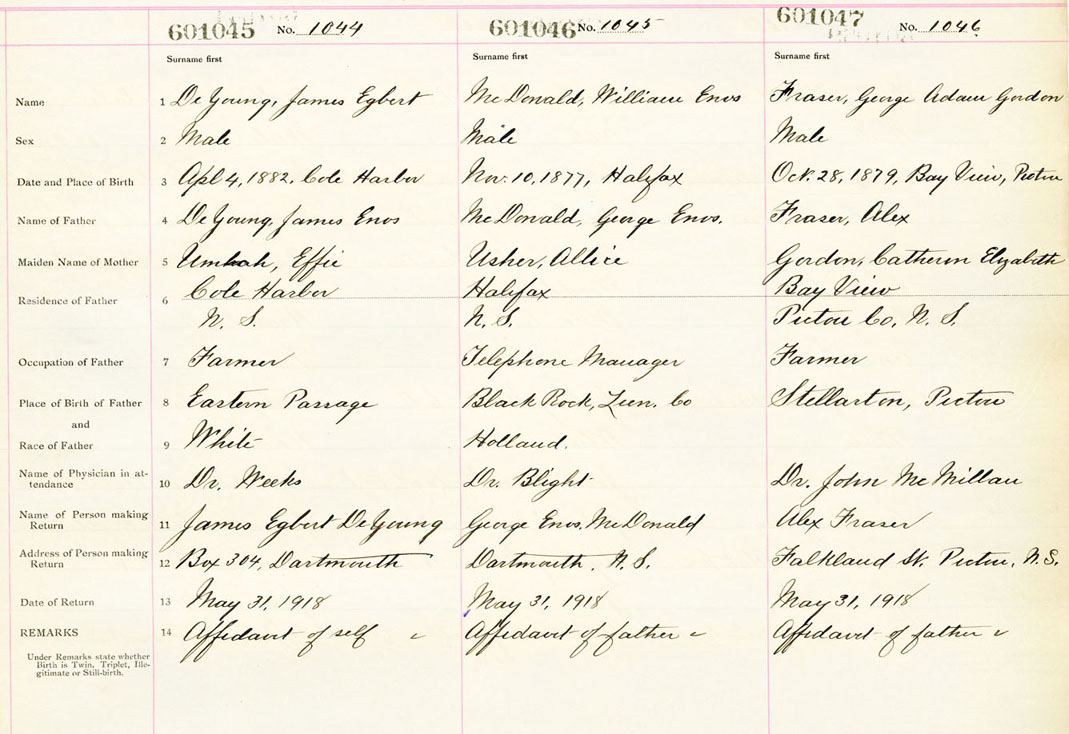 601045 No. 1044 601046 No. 1045 601047 No. 1046
Surname first Surname first Surname first
Name 1 De Young, James Egbert McDonald, William Enos Fraser, George Adam Gordon
Sex 2 Male Male Male
Date and Place of Birth 3 Apl 4, 1882, Cole Harbor Nov. 10, 1877, Halifax Oct. 28, 1879, Bay View, Pictou
Name of Father 4 De Young, James Enos McDonald, George Enos. Fraser, Alex
Maiden Name of Mother 5 Umlah, Effie Usher, Allice Gordon, Catheron Elyzabeth
Residence of Father 6 Cole Harbor Halifax Bay View
N. S. N. S. Pictou Co, N. S.
Occupation of Father 7 Farmer Telephone Manager Farmer
Place of Birth of Father 8 Eastern Passage Black Rock, Lun. Co Stellarton, Pictou
and
Race of Father 9 White Holland.
Name of Physician in at-
tendance 10 Dr. Weeks Dr. Blight Dr. John McMillan
Name of Person making
Return 11 James Egbert DeYoung George Enos McDonald Alex Fraser
Address of Person making
Return 12 Box 304, Dartmouth Dartmouth, N. S. Falkland St. Pictou, N.S.
Date of Return 13 May 31, 1918 May 31, 1918 May 31, 1918
REMARKS 14 Affidavit of self Affidavit of father Affidavit of father
Under Remarks state whether
Birth is Twin, Triplet, Ille-
gitimate or Still-birth.